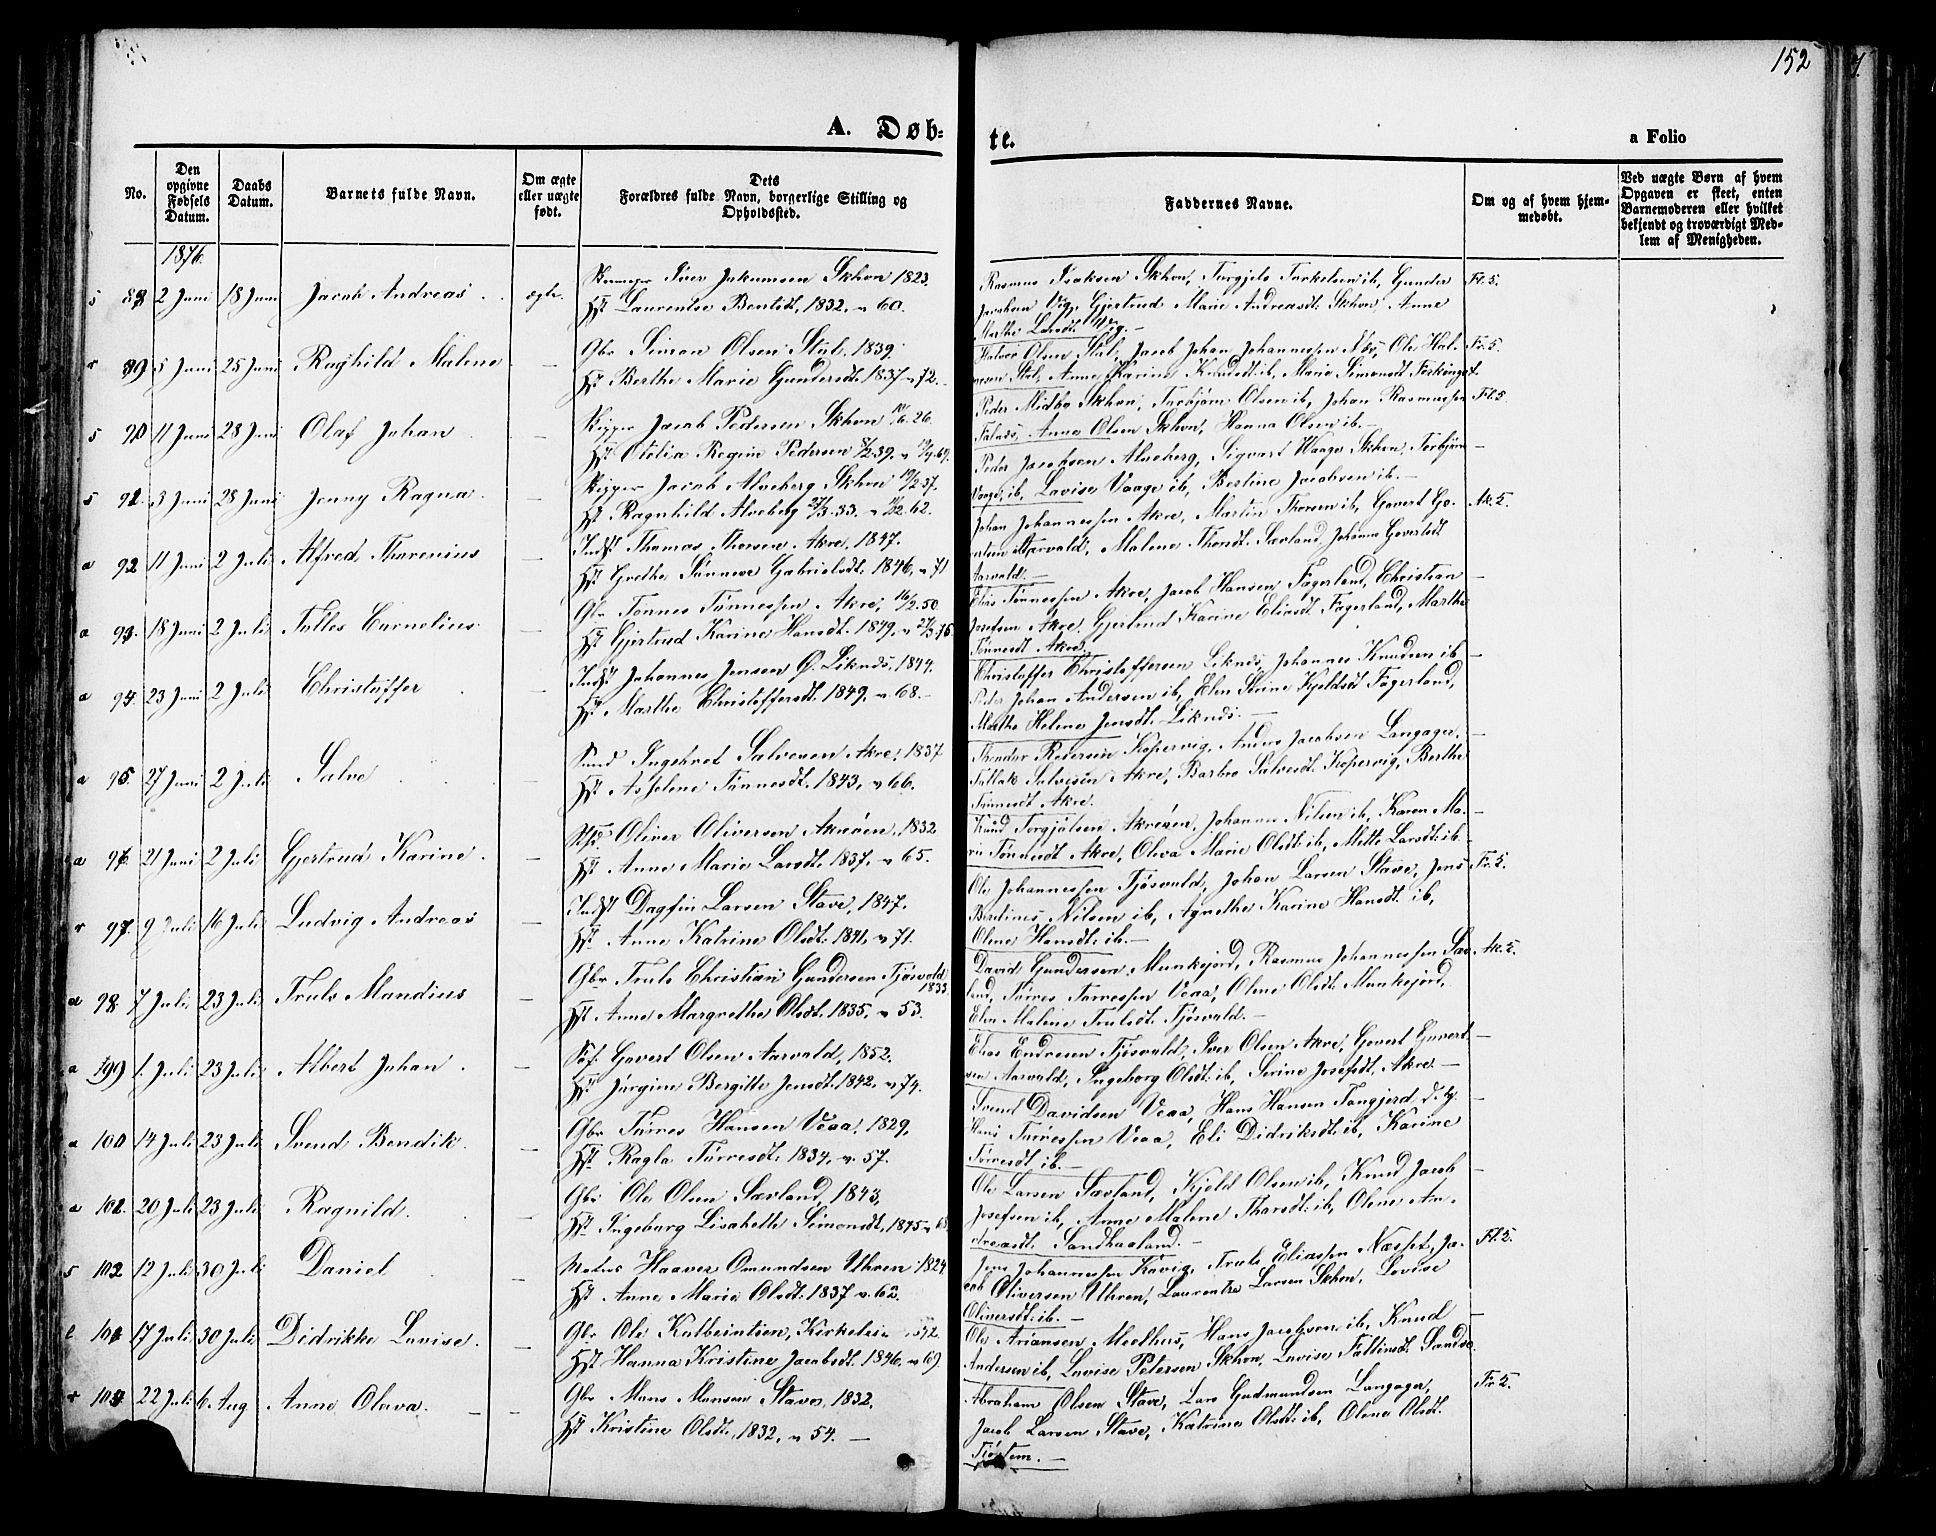 152
A. Døb-
te.
a Folio
No.
Den opgivne Fødsels Datum.
Daabs Datum.
Barnets fulde Navn.
Om ægte eller uægte født.
Dets Forældres fulde Navn, borgerlige Stilling og Opholdssted.
Faddernes Navne.
Om og af hvem hjemmedøbt.
Ved uægte Børn af hvem Opgaven er skeet, enten Barnemoderen eller hvilket bekjendt og troværdigt Medlem af Menigheden.
1876.
s 88 2 Juni 18 Juni Jacob Andreas ægte. Iver Jakumsen Skhvn 1823.
Hst Laurentse Bentsdt, 1832, v 60.
Rasmus Isaksen Skhvn, Torgjels Torkelsen ib, Gunder Fl. 5.
Jacobsen Vig, Gjertrud Marie Andreasdt Skhvn, Anne
Marthe Larsdt. Vig.
r 89 5 Juni 25 Juni Raghild Malene — Gbr Simon Olsen Stol, 1839.
Hst Berthe Marie Gundersdt. 1837 v 72.
Halvor Olsen Stol, Jacob Johan Johannessen Næs, Ole Hal- Fr. 5.
vorsen Stol, Anne Karine Knudsdt ib, Marie Simonsdt Ferkingst.
s 90 11 Juni 28 Juni Olaf Johan — Skipper Jacob Pedersen Skhvn 26.
Hst Otelia Regine Pedersen 39. v 69.
Peder Midbø Skhvn, Torbjørn Olsen ib, Johan Rasmussen Fl. 5.
Falnæs, Anna Olsen Skhvn, Hanna Olsen ib.
s 91. 3 Juni 28 Juni Jenny Ragna — Skipper Jacob Alveberg Skhvn 19/2 37.
Hst Ragnhild Alveberg 27/3. 33. v 62.
Peder Jacobsen Alveberg, Sigvart Waage Skhvn, Torbjørn —
Vaage ib, Lovise Vaage ib, Bertine Jacobsen ib.
a 92 11 Juni 2 Juli Alfred Thorenius — Indst Thomas Thorsen Akre, 1847.
Hst Grethe Sønneve Gabrielsdt. 1846, v 71
Johan Johannessen Akre, Martin Thorsen ib, Govert Go- Ak. 5.
vertsen Aarvald, Malene Thorsdt. Sævland, Johanna Govertsdt
Aarvald.
a 93. 18 Juni 2 Juli Tolles Cornelius — Gbr Tønnes Tønnessen Akre, 16/2. 50.
Hst Gjertrud Karine Hansdt. 1849, v 27/3. 75.
Elias Tønnessen Akre, Jacob Hansen Fagerland, Christian —
Josefsen Akre, Gjertrud Karine Eliasdt Fagerland, Marthe
Tønnesdt Akre.
a 94. 23 Juni 2 Juli Christoffer — Indst Johannes Jensen Ø. Liknæs, 1844.
Hst Marthe Christoffersdt. 1849, v 68.
Christoffer Christoffersen Liknæs, Johannes Knudsen ib —
Peder Johan Andersen ib, Elen Serine Kjeldsdt Fagerland,
Marthe Helene Jensdt. Liknæs.
a 95. 27 Juni 2 Juli Salve Ingebret Salvesen Akre, 1837
Hst Asselene Tønnesdt. 1843, v 66.
Reversen Kopervig, Anders Jacobsen Langager, —
Tollak Salvesen Akre, Barbro Salvesdt. Kopervig, Berthe
Tønnesdt Akre.
a 96 21 Juni 2 Juli Gjertrud Karine. — Oliver Oliversen Akreøen, 1832.
Hst Anne Marie Larsdt. 1837, v 65.
Knud Torgjølsen Akreøen, Johanna Nilsen ib, Karen Ma- —
rie Tønnesdt Akre, Oleva Marie Olsdt ib, Mette Larsdt ib
r 97. 9 Juli 16 Juli Ludvig Andreas — Indst Dagfin Larsen Stave, 1847.
Hst Anne Katrine Olsdt. 1841, v 71.
Ole Johannessen Tjøsvald, Johan Larsen Stave, Jens Fr. 5.
Berdines Nilsen ib, Agnethe Karine Hansdt. ib,
Olene Hansdt. ib.
a 98. 7 Juli. 23 Juli Truls Mandius — Gbr Truls Christian Gundersen Tjøsvold 1833
Hst Anne Margrethe Olsdt. 1835, v 53.
David Gundersen Munkejord, Rasmus Johannessen Sæv- Ak. 5.
land, Tørres Tørressen Veaa, Olene Olsdt. Munkejord,
Elen Malene Trulsdt. Tjøsvald.
a 99 1. Juli 23 Juli Albert Johan. — Søf. Govert Olsen Aarvald, 1852.
Hst Jørgine Bergitte Jensdt. 1842, v 74.
Elias Endresen Tjøsvald, Iver Olsen Akre, Govert Govert- —
sen Aarvald, Ingeborg Olsdt ib, Serine Josefsdt, Akre.
a 100 14 Juli 23 Juli Svend Bendik. — Gbr Tørres Hansen Veaa, 1829,
Hst Ragla Tørresdt. 1834, v. 57.
Svend Davidsen Veaa, Hans Hansen Tangjerd
Hans Tørressen Veaa, Eli Didriksdt. ib, Karine
Tørresdt ib.
a 101. 20 Juli 23 Juli Ragnild. — Gbr Ole Olsen Sævland, 1843,
Hst Ingeborg Lisabeth Simonsdt, 1845 v 68
Ole Larsen Sævland, Kjeld Olsen ib, Knud Jacob —
Josefsen ib, Anne Malene Thorsdt. ib, Olene An-
dreasdt. Sandhaaland.
s 102 12 Juli 30 Juli Daniel — Haaver Omundsen Uthren, 1824
Hst Anne Marie Olsdt. 1837 v. 62.
Jens Johannessen Kavig, Truls Eliassen Næsset, Ja- Fl. 5.
cob Oliversen Uthren, Laurentze Larsen Skhvn, Lovise
Oliversdt. ib.
103 17 Juli 30 Juli Didrikke Lovise. — Gbr Ole Kolbeintsen, Kirkeleie
Hst Hanna Kristine Jacobsdt. 1846, v 69.
Ole Ariansen Medhus, Hans Jacobsen ib, Knud —
Andersen ib, Lovise Petersen Skhvn, Lovise Sandvo
r 104 22 Juli 6. Aug Anne Oleva. — Gbr Mons Monsen Stave, 1832.
Hst Kristine Olsdt, 1832, v 54.
Abraham Olsen Stave, Lars Gudmundsen Langager, Fr 5.
Jacob Larsen Stave, Katrine Olsdt. ib, Olene Olsdt.